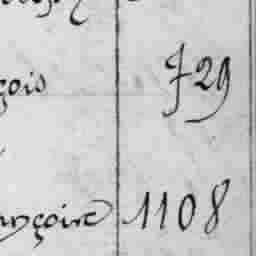 çois 729
ançoise 1108